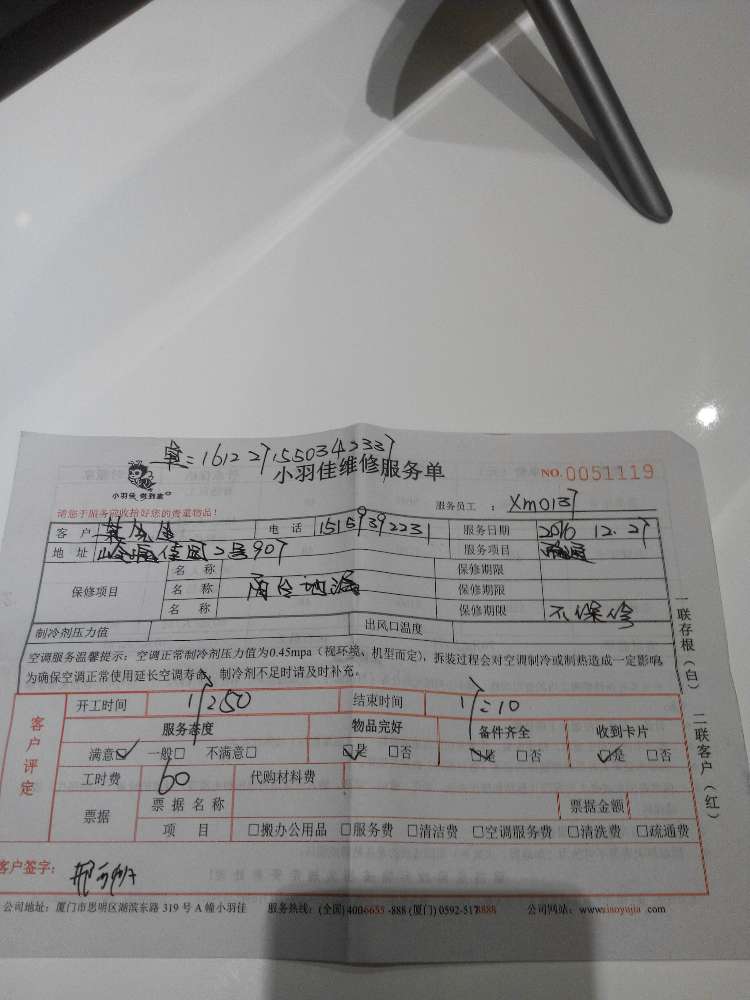 单=161227155034233
小羽佳维修服务单 NO.0051119
小羽佳
服务员工 : Xm0137
请您于服务前收拾好您的贵重物品!
客户 电话 服务日期 2016 12.27
地址 佳园2号907 服务项目
保修项目 名称 保修期限
名称 两台 保修期限
名称 保修期限 不保修
制冷剂压力值 出风口温度
空调服务温馨提示:空调正常制冷剂压力值为0.45mpa(视环境、机型而定),拆装过程会对空调制冷或制热造成一定影响
为确保空调正常使用延长空调寿命,制冷剂不足时请及时补充。
一联存根(白) 二联客户(红)
客户评定
开工时间 结束时间
服务态度 物品完好 备件齐全 收到卡片
满意☑ 一般□ 不满意□ ☑是 □否 ☑是 □否 ☑是 □否
工时费 60 代购材料费
票据 票据名称 票据金额
项目 □搬办公用品 □服务费 □清洁费 □空调服务费 □清洗费 □疏通费
客户签字:
公司地址:厦门市思明区湖滨东路 319 号 A 幢小羽佳 服务热线:(全国) 4006655 -888 (厦门) 0592-5178888 公司网站:www.xiaoyujia .com